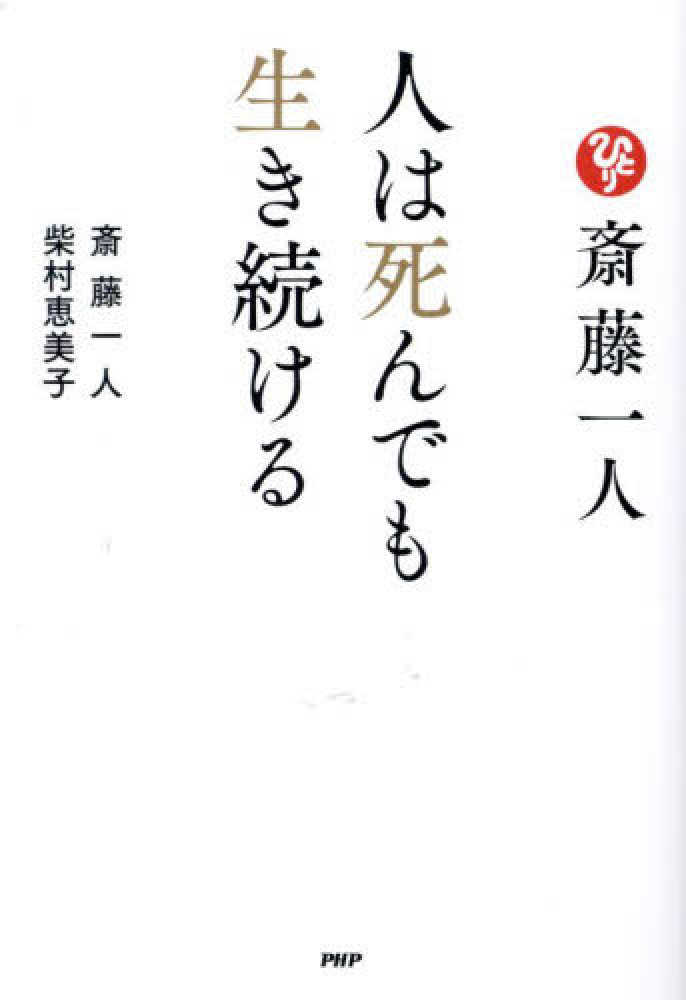 ひとり
斎藤一人
人は死んでも
生き続ける
斎藤一人
柴村恵美子
PHP